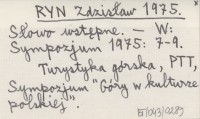 RYN Zdzisław 1975.
Słowo wstępne. — W:
Sympozjum 1975: 7-9.
Turystyka górska, PTT,
Sympozjum "Góry w kulturze
polskiej".